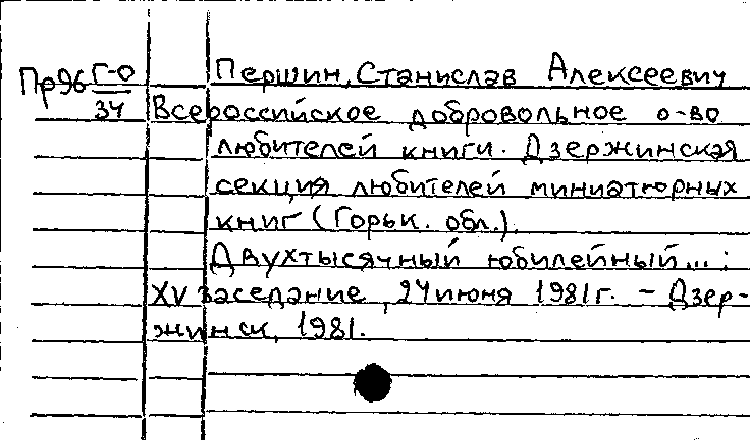 Першин, Станислав Алексеевич
Пр96 Г-0
34
Всероссийское добровольное о-во
любителей книги. Дзержинская
секция любителей миниатюрных
книг (Горьк. обл.).
Двухтысячный юбилейный... :
XV заседание, 24 июня 1981 г. – Дзер-
жинск, 1981.